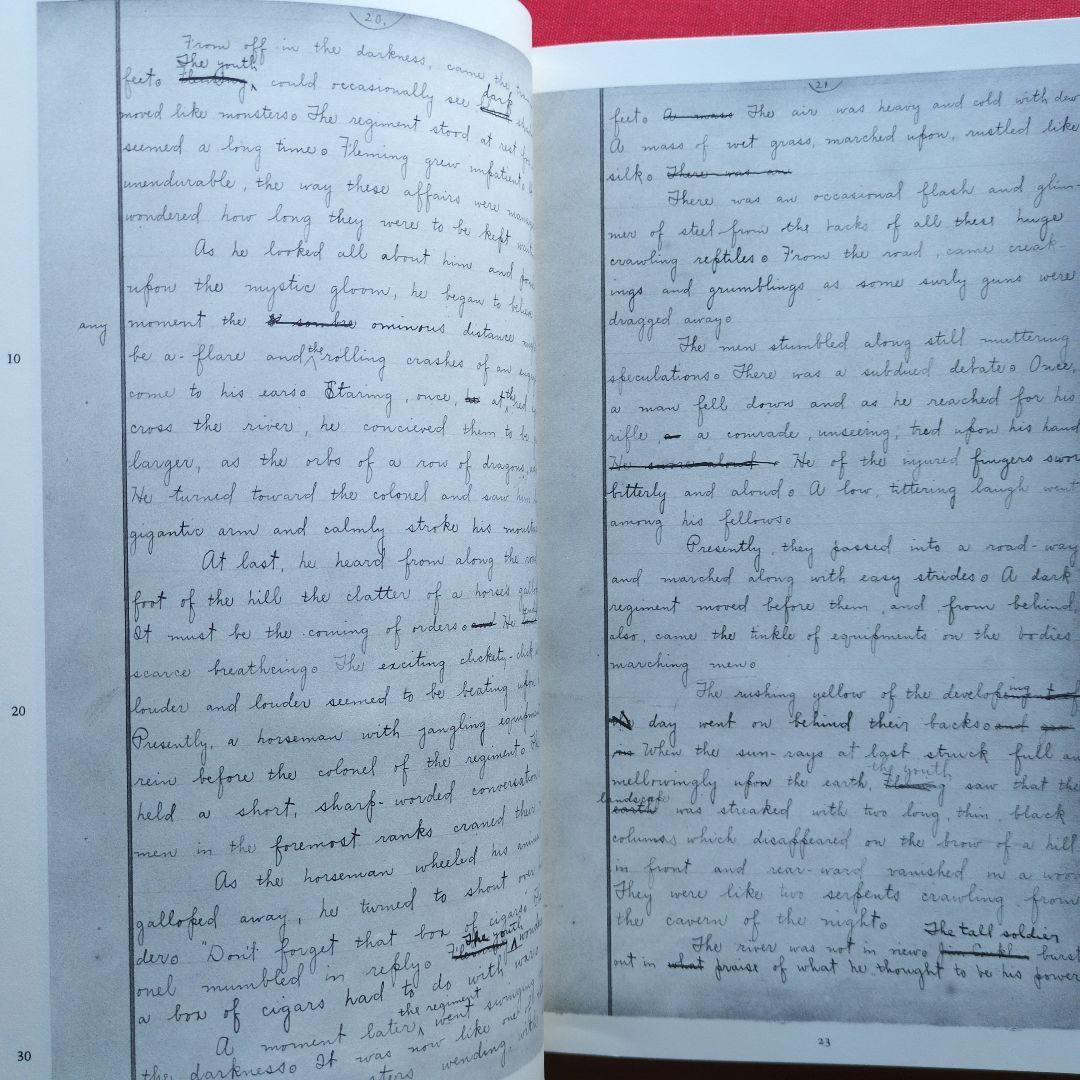 20.
From off in the darkness, came the
The youth
feet. Fleming could occasionally see dark
moved like monsters. The regiment stood at rest for
seemed a long time. Fleming grew impatient.
unendurable, the way these affairs were
wondered how long they were to be kept
As he looked all about him and
upon the mystic gloom, he began to
any
moment the sombre ominous distance
10
be a flare and the rolling crashes of an
come to his ears. Staring, once, at the red
cross the river, he concieved them to be
larger, as the orbs of a row of dragons,
He turned toward the colonel and saw him
gigantic arm and calmly stroke his
At last, he heard from along the
foot of the hill the clatter of a horse's
It must be the coming of orders. and He
scarce breathcing. The exciting clickety-click
20
louder and louder seemed to be beating upon
Presently, a horseman with jangling
rein before the colonel of the regiment.
held a short, sharp-worded
men in the foremost ranks craned their
As the horseman wheeled his
galloped away, he turned to shout over
der. "Don't forget that box of cigars.
The youth
onel mumbled in reply.
a box of cigars had to do with war.
the regiment
A moment later went swinging
30
the darkness. It was now like one of
wending with
21
feet. A mass The air was heavy and cold with dew
A mass of wet grass, marched upon, rustled like
silk. There was an
There was an occasional flash and glim-
mer of steel from the backs of all these huge
crawling reptiles. From the road, came creak-
ings and grumblings as some surly guns were
dragged away.
The men stumbled along still muttering
speculations. There was a subdued debate. Once,
a man fell down and as he reached for his
rifle a a comrade, unseeing, trod upon his hand
He He of the injured fingers swor
bitterly and aloud. A low, tittering laugh went
among his fellows.
Presently, they passed into a road-way
and marched along with easy strides. A dark
regiment moved before them, and, from behind,
also, came the tinkle of equipments on the bodies
marching men.
The rushing yellow of the developing
day went on behind their backs. and
When the sun-rays at last struck full an
the youth
mellowingly upon the earth, Fleming saw that the
landscape
earth was streaked with two long, thin, black
columns which disappeared on the brow of a hill
in front and rear-ward vanished in a wood
They were like two serpents crawling from
the cavern of the night.
The tall soldier
The river was not in view. Jim Conklin burst
out in what praise of what he thought to be his power
23